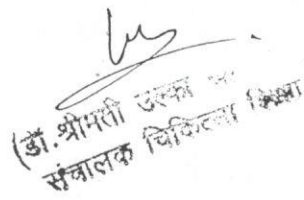 (डॉ. श्रीमती उल्का
संचालक चिकित्सा शिक्षा